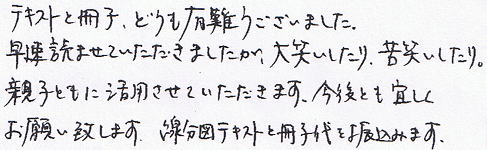 テキストと冊子、どうも有難うございました。
早速読ませていただきましたが、大笑いしたり、苦笑いしたり。
親子ともに活用させていただきます。今後とも宜しく
お願い致します。線分図テキストと冊子代をお振込みます。